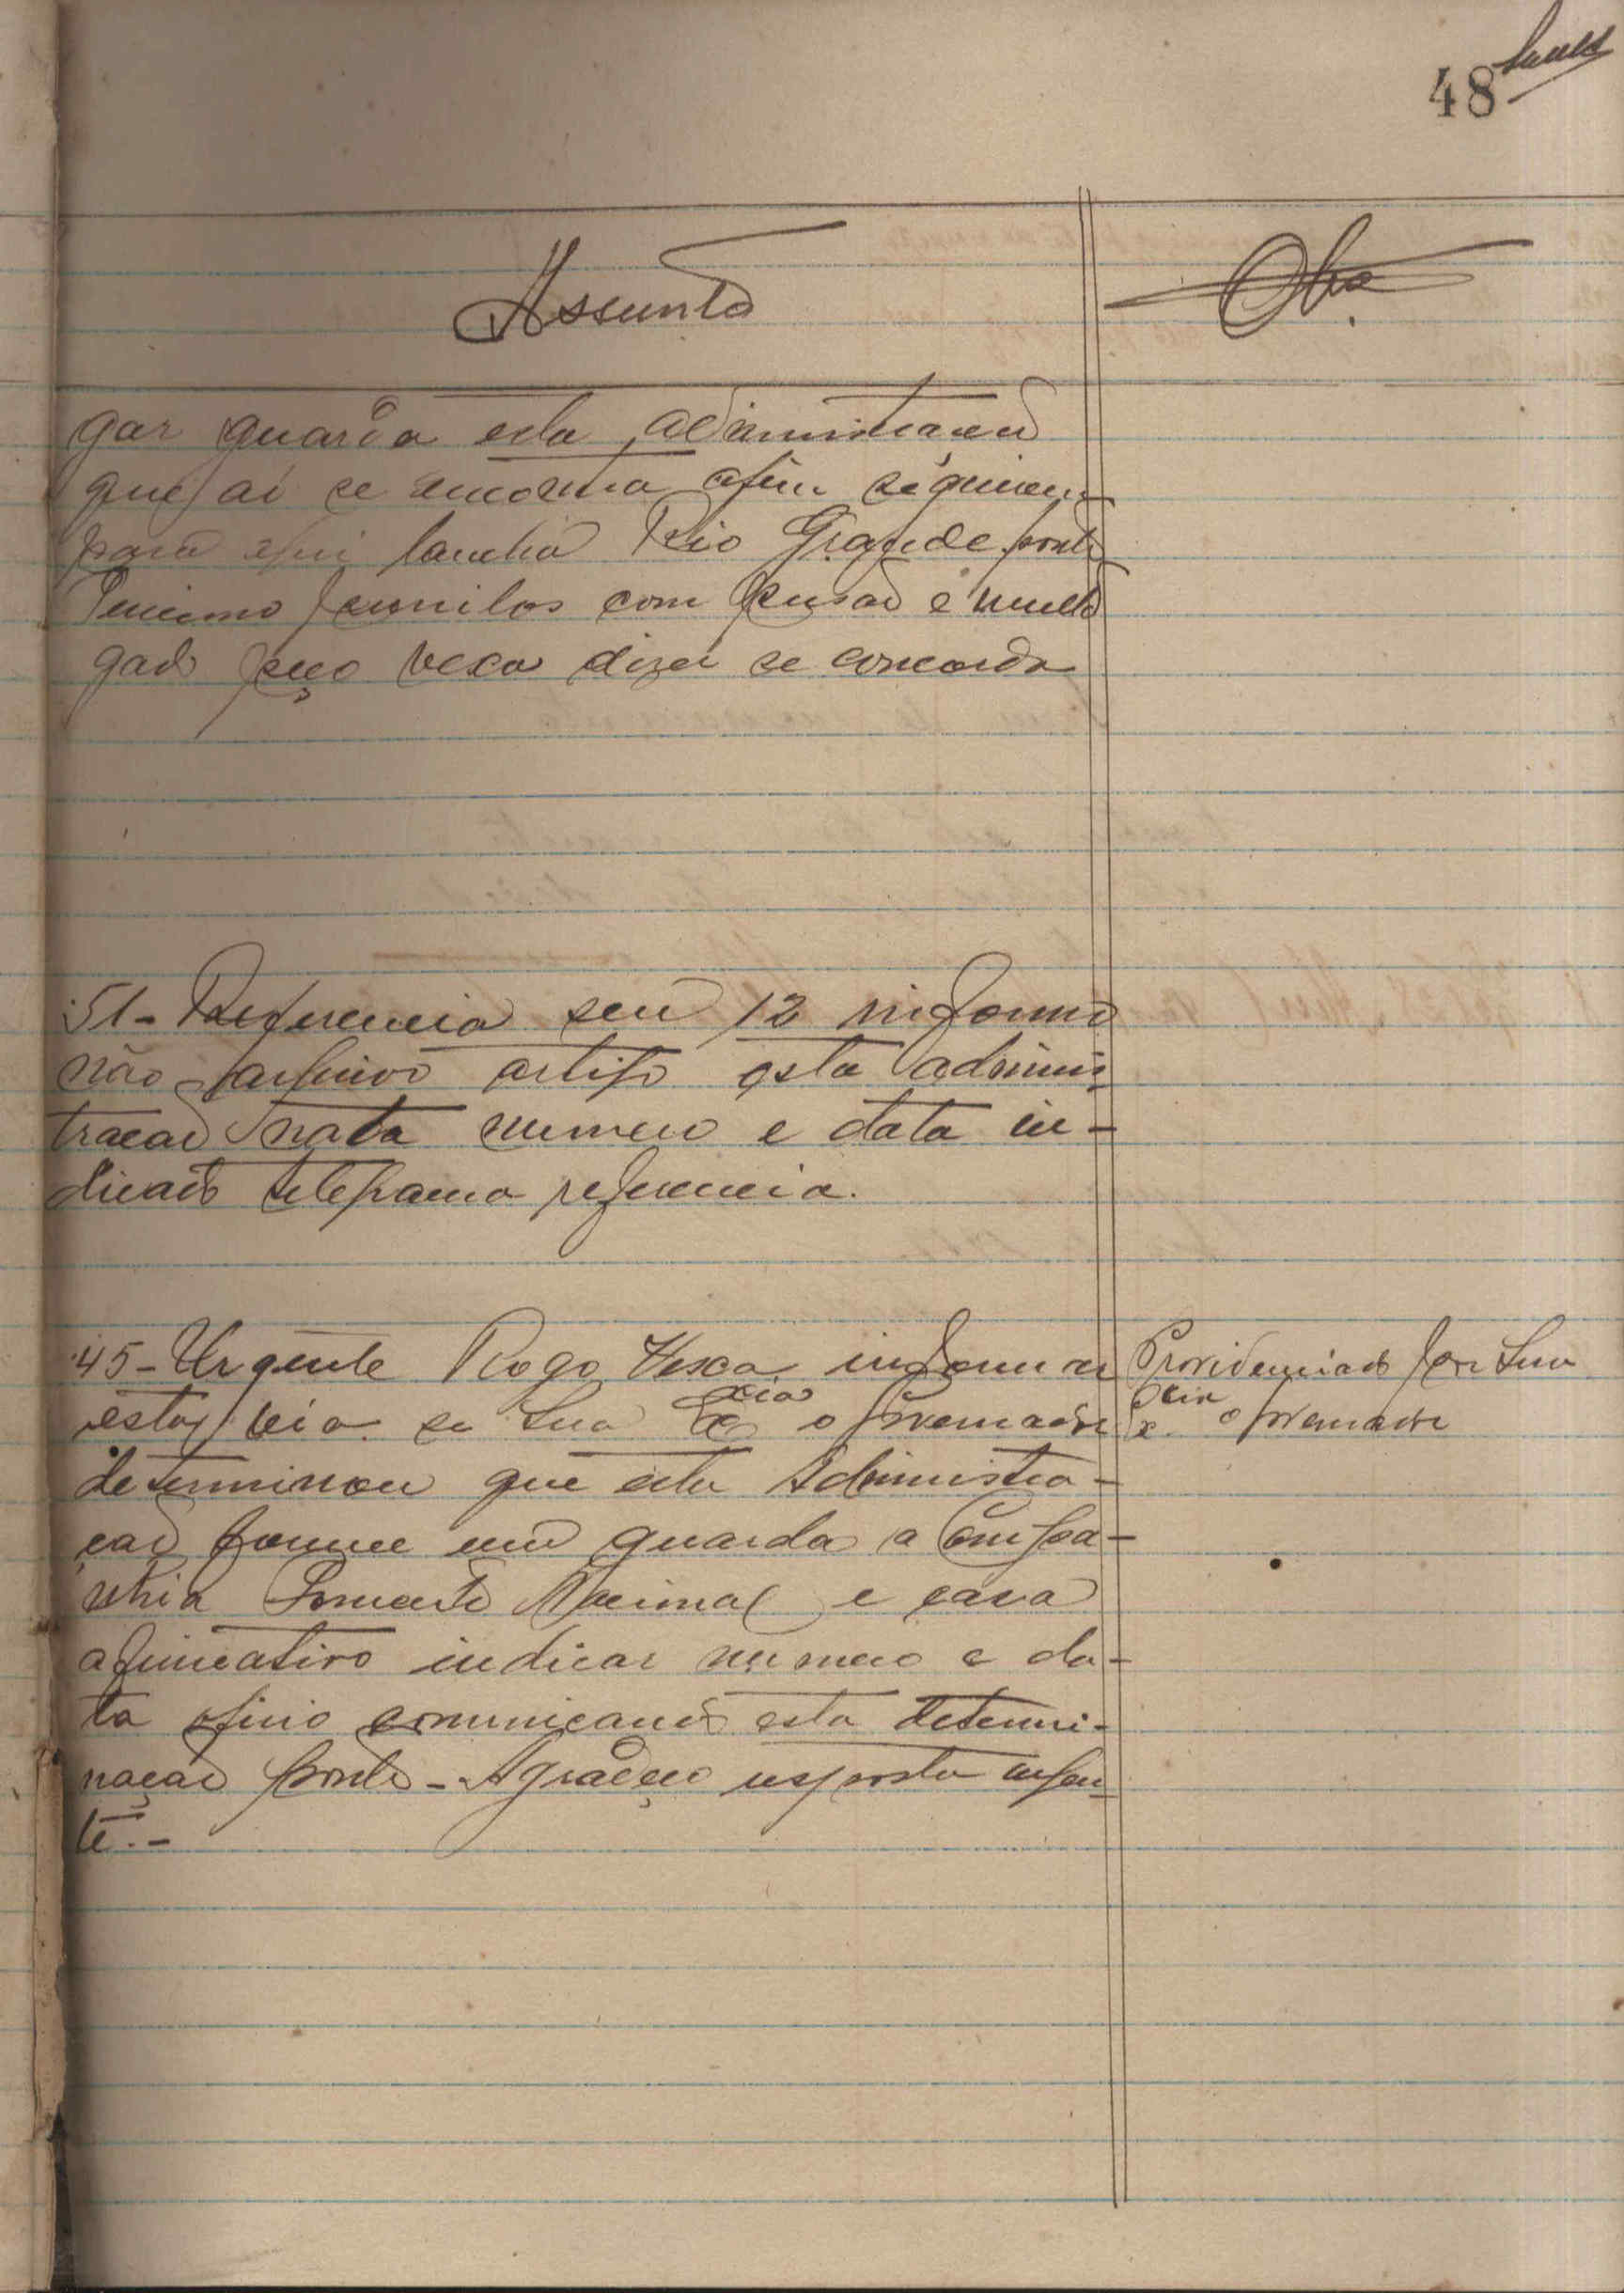 48
Assunto
Obs.
gar guarda esta administracao
que ai se encontra afim seguirem
para aqui lancha Rio Grande ponto
com pensão e
gado peço vexa dizer se concorda
51- Referencia seu 12 informo
não arquivo artigo esta adminis
tracao nata numero e data in-
dicado telegrama referencia.
45- Urgente Rogo Vexa informar
esta via se Sua Excia o Governador
determinou que esta Administra-
cao fornece um guarda a Compa-
nhia Comercio Nacional e caso
afirmativo indicar numero e da-
ta oficio comunicando esta determi-
nação ponto - Agradeço resposta urgen-
te.-
Providenciado por Sua
Excia o Governador